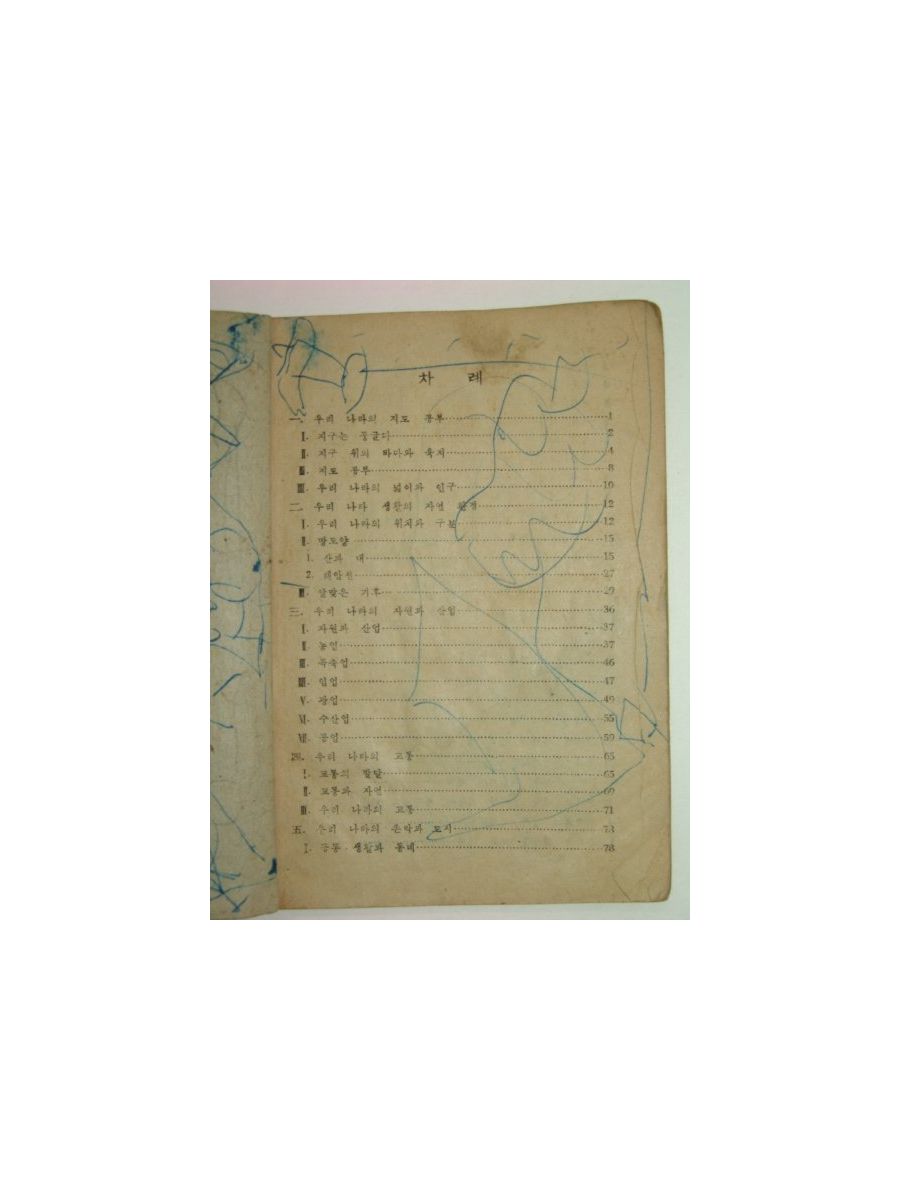 차 례
一. 우리 나라의 지도 공부 1
Ⅰ. 지구는 둥글다 2
Ⅱ. 지구 위의 바다와 육지 4
Ⅲ. 지도 공부 8
Ⅲ. 우리 나라의 넓이와 인구 10
二. 우리 나라 생활의 자연 환경 12
Ⅰ. 우리 나라의 위치와 구분 12
Ⅱ. 땅모양 15
1. 산과 내 15
2. 해안선 27
Ⅲ. 알맞은 기후 29
三. 우리 나라의 자원과 산업 36
Ⅰ. 자원과 산업 37
Ⅱ. 농업 37
Ⅲ. 목축업 46
Ⅲ. 임업 47
Ⅴ. 광업 49
Ⅵ. 수산업 55
Ⅶ. 공업 59
四. 우리 나라의 교통 65
Ⅰ. 교통의 발달 65
Ⅱ. 교통과 자연 69
Ⅲ. 우리 나라의 교통 71
五. 우리 나라의 촌락과 도시
Ⅰ. 공동 생활과 동네 78